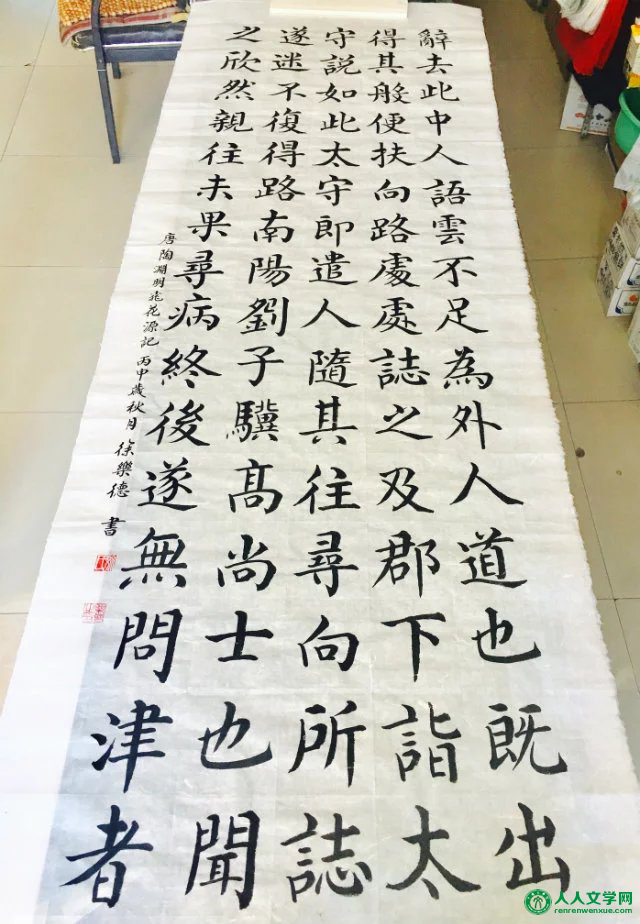 辭去此中人語雲不足為外人道也既出
得其般便扶向路處處誌之及郡下詣太
守說如此太守即遣人隨其往尋向所誌
遂迷不復得路南陽劉子驥高尚士也聞
之欣然親往未果尋病終後遂無問津者
唐陶淵明桃花源記丙申歲秋月徐樂德書
人人文学网
renrenwenxue.com